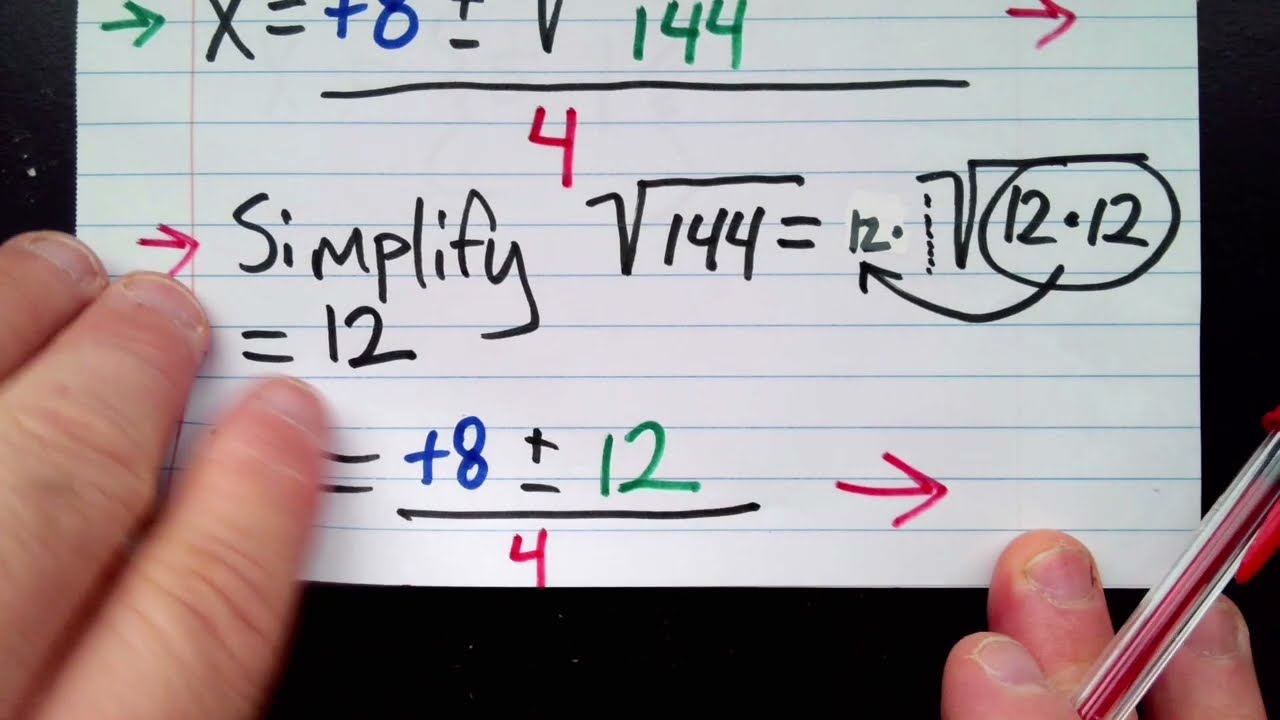 → X = +8 ± √144 →
4
→ Simplify √144 = 12· √12·12
= 12
= +8 ± 12 →
4